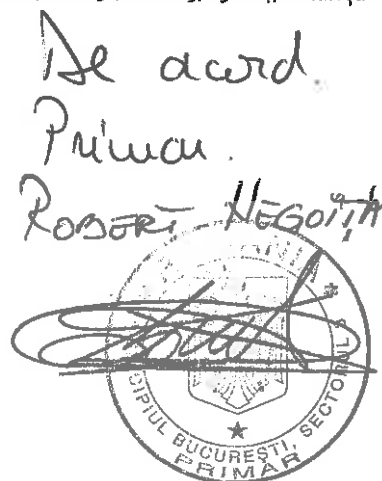 De acord.
Primar.
ROBERT NEGOIȚĂ
ROMÂNIA
CIPIUL BUCUREȘTI, SECTORUL 3
PRIMAR